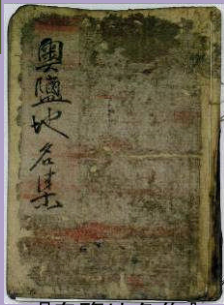 輿鹽地名集